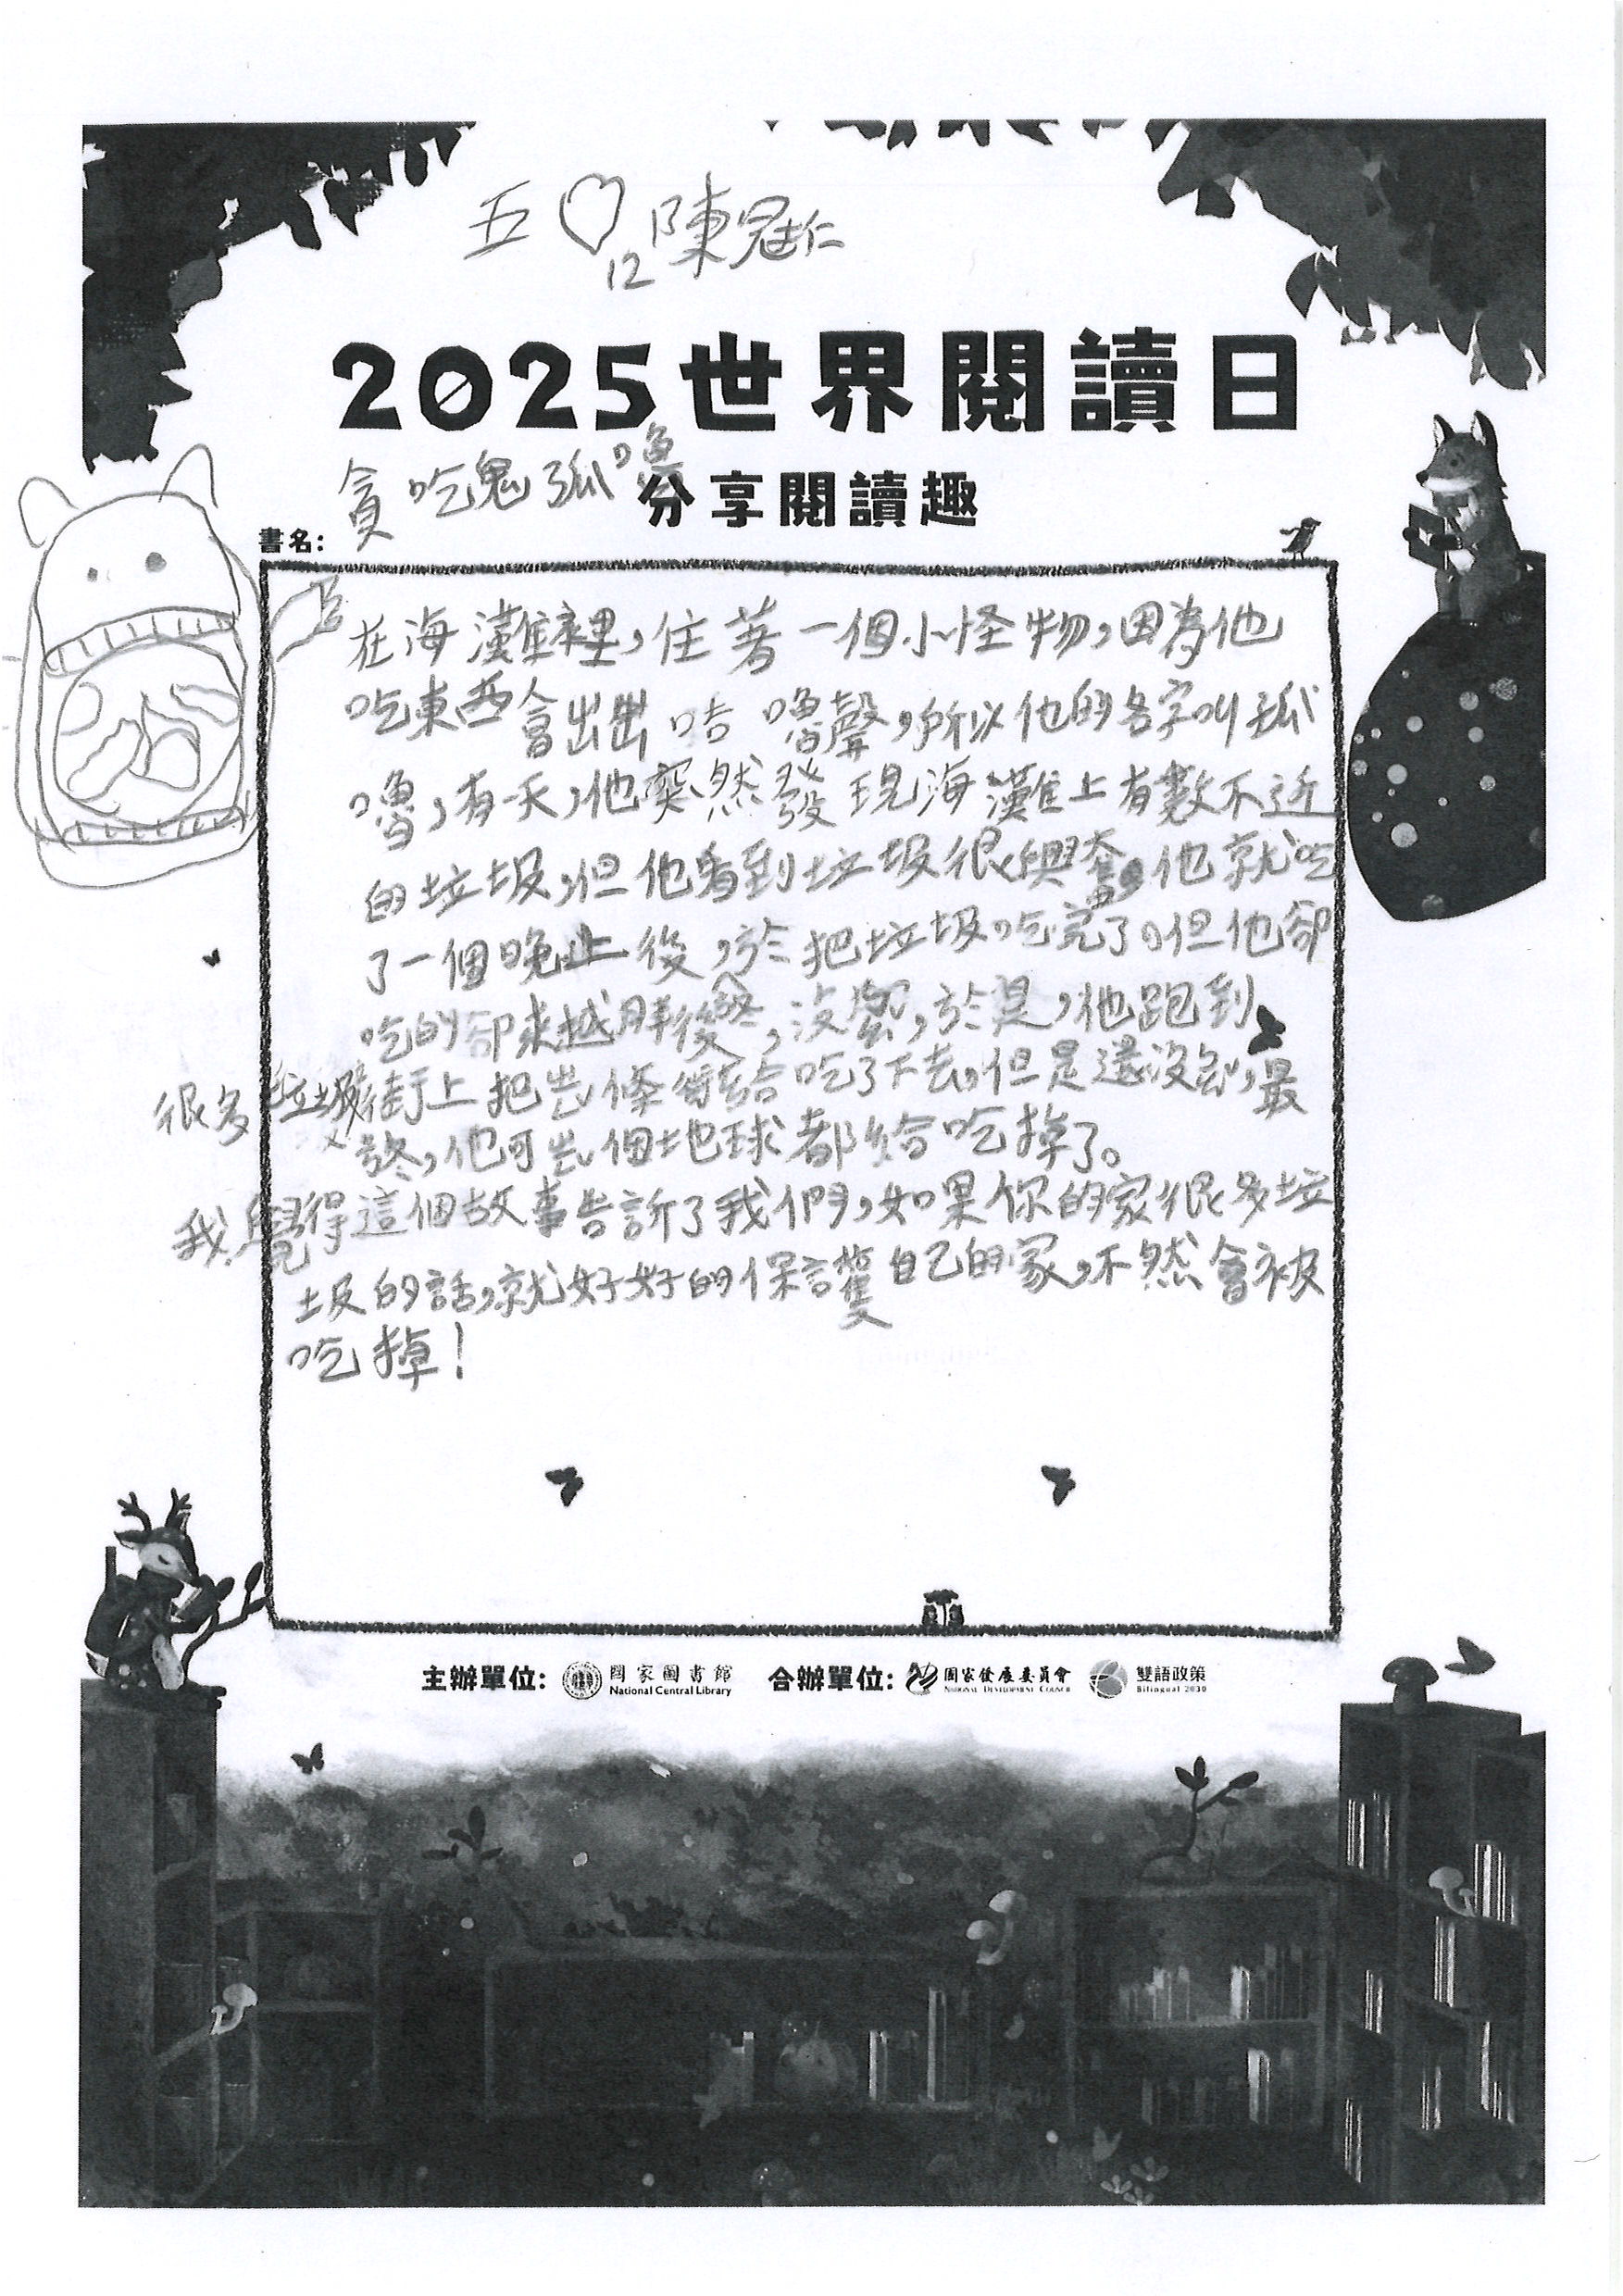 五♡
12 陳冠仁
2025世界閱讀日
貪吃鬼孤嚕
分享閱讀趣
書名:
在海灘裡,住著一個小怪物,因為他
吃東西會出出咕嚕聲,所以他的名字叫孤
嚕,有天,他突然發現海灘上有數不近
的垃圾,但他看到垃圾很興奮,他就吃
了一個晚上後,於把垃圾吃完了。但他卻
吃的卻來越胖後,沒,於是,他跑到
很多垃圾街上把豈條街給吃了下去,但是還沒,最
終,他可豈個地球都給吃掉了。
我覺得這個故事告訴了我們,如果你的家很多垃
圾的話,就好好的保護自己的家,不然會被
吃掉!
主辦單位: 國家圖書館 合辦單位: 國家發展委員會 雙語政策
National Central Library National Development Council Bilingual 2030